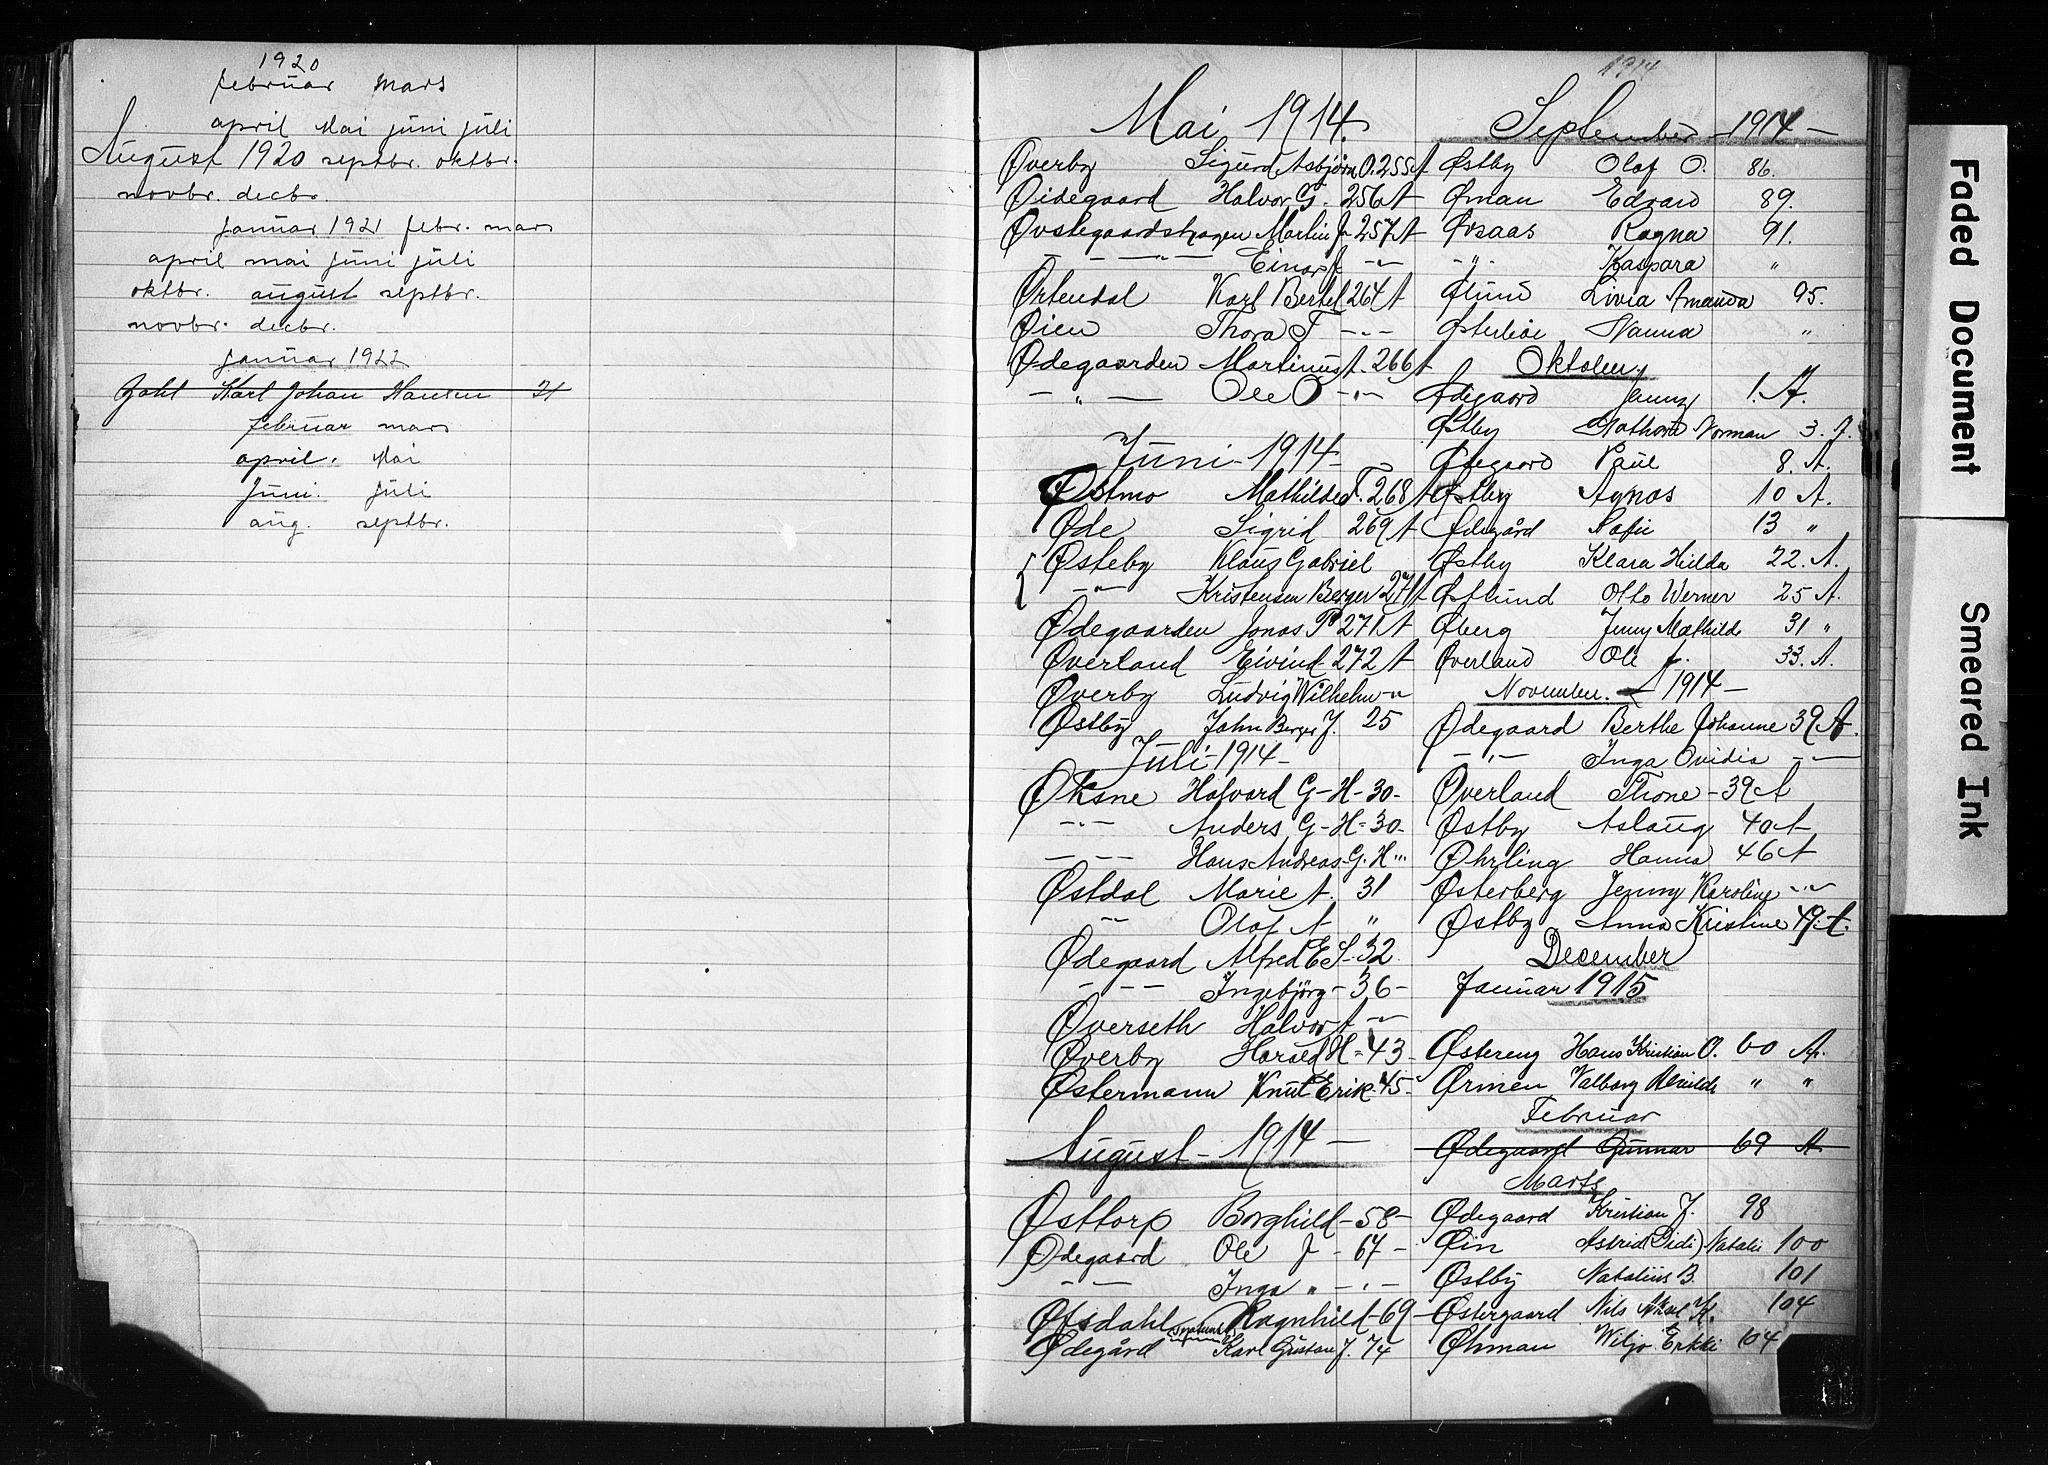 1920
februar mars
april Mai juni juli
August 1920 septbr. oktbr.
novbr. decbr.
januar 1921 febr. mars
april mai juni juli
oktbr. august septbr.
novbr. decbr.
januar 1922
Johl Karl Johan Hansen 21
februar mars
april. Mai
juni. juli
aug. septbr.
Mai 1914.
Øverby Sigurd Asbjørn O. 255 A
Øidegaard Halvor G. 256 A
Øvstegaardshagen Martin J. 257 A
— „ — Einar J. — „ —
Ørtendal Karl Bertel 264 A
Øien Thora F — „ —
Ødegaarden Martinus A. 266 A
— „ — Ole O — „ —
Juni 1914 —
Østmo Mathilde T. 268 A
Øde Sigrid 269 A
Østeby Klaus Gabriel
— „ — Kristensen Berger 271 A
Ødegaarden Jonas P 271 A
Øverland Eivind 272 A
Øverby Ludvig Wilhelm — „
Østby John Berger J. 25
Juli 1914 —
Øksne Halvard G - H - 30 -
— „ — Anders G - H - 30 -
— — — Hans Andreas G. H „
Østdal Marie A. 31
— „ — Olaf A „
Ødegaard Alfred E S. 32
— — — Ingebjörg - 36 -
Øverseth Halvor A — „ —
Øverby Harald H - 43 -
Østermann Knut Erik 45 -
August - 1914 —
Østtorp Borghild - 58 -
Ødegaard Ole J - 67 -
— „ — Inga „ — „ —
Øfsdahl Ragnhild - 69 -
Ødegård Karl Gustav J. 74
1914
September 1914 —
Østby Olaf O. 86.
Øman Edvard 89.
Øvsaas Ragna 91.
— „ — Kaspara „
Ølund Livia Amanda 95.
Østerlie Nanna „
Oktober
Ødegaard Jenny 1. A.
Østby Mathora Norman 3. A.
Ødegaard Paul 8. A.
Østby Agnes 10 A.
Ødegård Sofie 13 „
Østby Klara Hilda 22. A.
Østlund Otto Werner 25 A.
Øberg Jenny Mathilde 31 „
Øverland Ole J. 33. A.
November. 1914 —
Ødegaard Berthe Johanne 39 A.
— „ — Inga Ovidia — „ —
Øverland Thone - 39 A
Østby Aslaug 40 A
Øhrling Hanna 46 A
Østerberg Jenny Karoline — „ —
Østby Anna Kristine 49. A.
December
Januar 1915
Østereng Hans Kristian O. 60 A.
Ørmen Valborg Alvilde „ „
Februar
Ødegaard Gunnar 69 A
Marts
Ødegaard Kristian J. 98
Øin Astrid (Didi) Natalie 100
Østby Natalius B. 101
Østergaard Nils Aksel K. 104
Øhman Wiljo Erkki 104